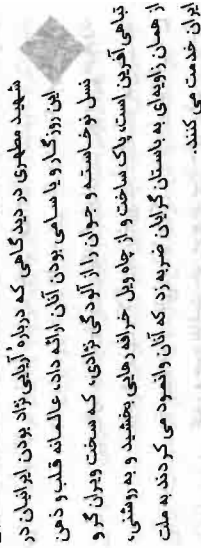 شهید مطهری در دیدگاهی که درباره آریایی نژاد بودن ایرانیان در
این روزگار و یا سامی بودن آنان ارائه داد، عالمانه قلب و ذهن
نسل نوخاسته و جوان را از آلودگی نژادی، که سخت ویران گر و
تباهی آفرین است، پاک ساخت و از چاه ویل خرافه رهایی بخشید و به روشنی،
از همان زاویه‌ای به باستان گرایان ضربه زد که آنان وانمود می کردند به ملت
ایران خدمت می کنند.